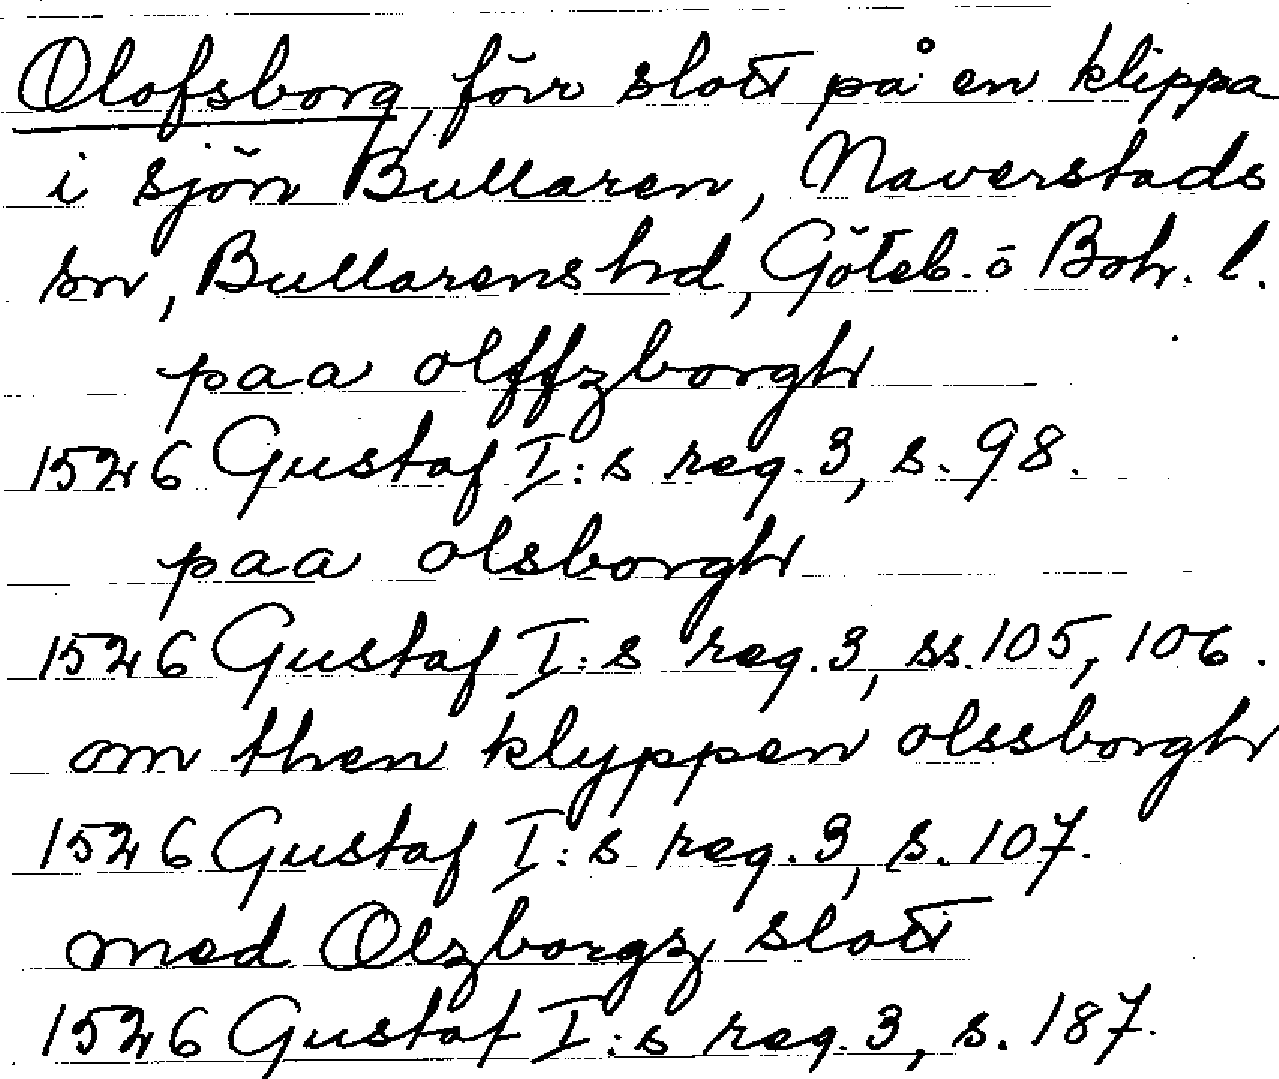 Olofsborg, förr slott på en klippa
i sjön Bullaren, Naverstads
sn, Bullarens hd, Göteb. o Boh. l.
paa olffzborgh
1526 Gustaf I:s reg. 3, s. 98.
paa olsborgh
1526 Gustaf I:s reg. 3, ss. 105, 106.
om then klyppen olssborgh
1526 Gustaf I:s reg. 3, s. 107.
med Olzborgz slott
1526 Gustaf I:s reg. 3, s. 187.